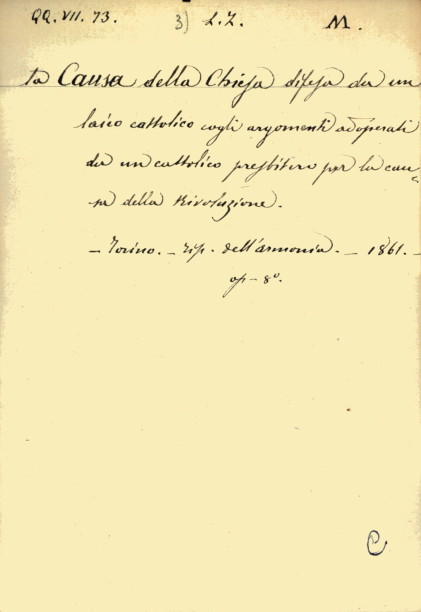 QQ. VII. 73. 3) L.Z. M.
la Causa della Chiesa difesa da un
laico cattolico cogli argomenti adoperati
da un cattolico presbitero per la cau=
sa della Rivoluzione.
— Torino. — Tip. dell'armonia. — 1861. —
op — 8º.
C